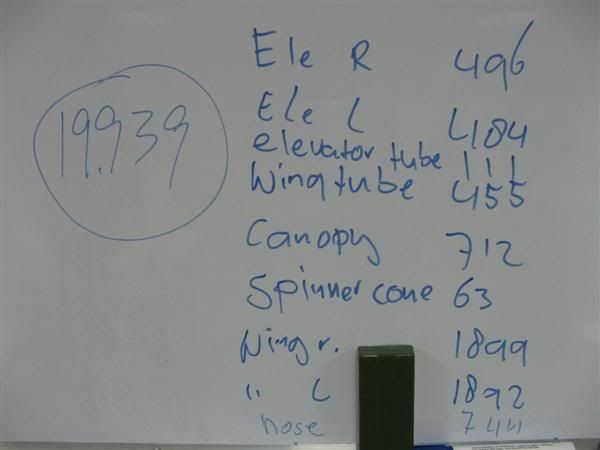 19.939
Ele R 496
Ele L 484
elevator tube 111
Wingtube 455
Canopy 712
Spinner cone 63
Wing r. 1899
" L 1892
nose 744